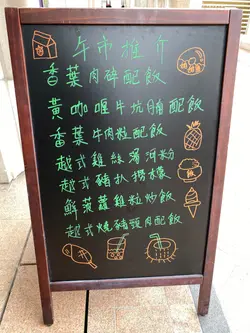 午市推介
香葉肉碎配飯
黃咖喱牛坑腩配飯
香葉牛肉粒配飯
越式雞絲湯河粉
越式豬扒撈檬
鮮菠蘿雞粒炒飯
越式燒豬頸肉配飯